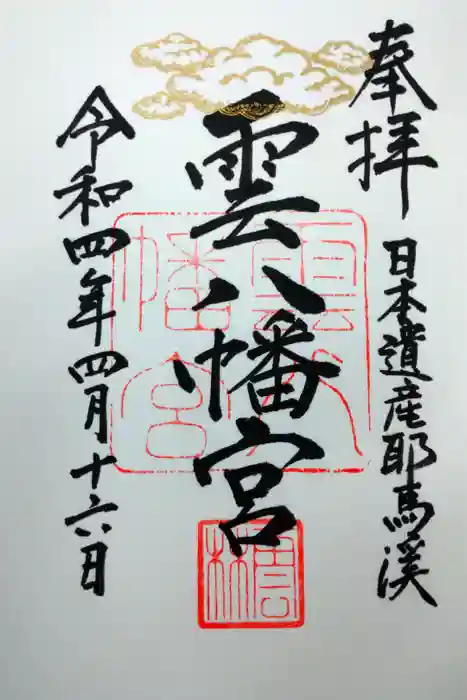 奉拝
日本遺産耶馬溪
雲八幡宮
雲八幡宮
令和四年四月十六日